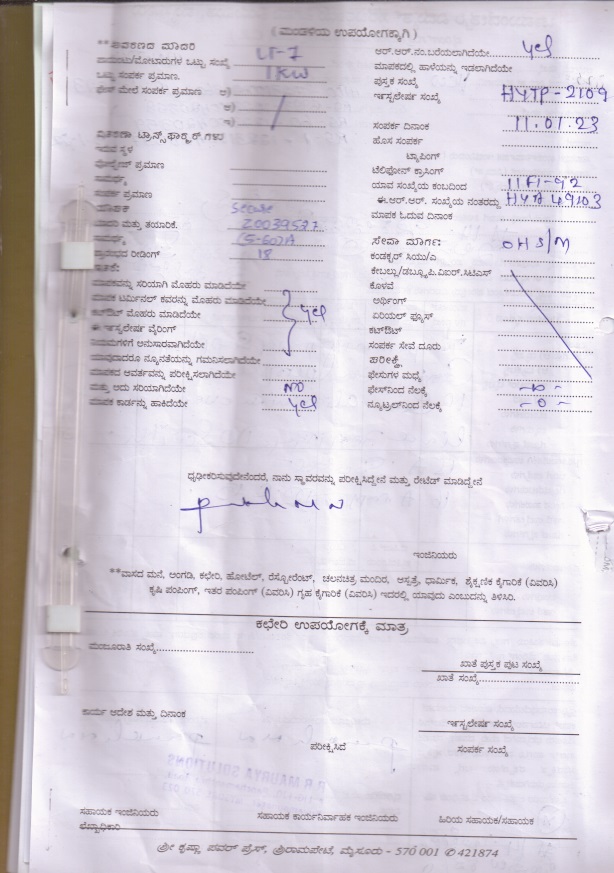 ( ಮಂಡಳಿಯ ಉಪಯೋಗಕ್ಕಾಗಿ )
**ಸ್ಥಾವರಣದ ಮಾದರಿ LT-1
ದೀಪಗಳು/ಮೋಟಾರುಗಳ ಒಟ್ಟು ಸಂಖ್ಯೆ
ಒಟ್ಟು ಸಂಪರ್ಕ ಪ್ರಮಾಣ. 1KW
ಫೇಸ್ ಮೇಲೆ ಸಂಪರ್ಕ ಪ್ರಮಾಣ ಅ)
ಆ)
ಇ)
ವಿತರಣಾ ಟ್ರಾನ್ಸ್‌ಫಾರ್ಮರ್‌ಗಳು
ಇರುವ ಸ್ಥಳ
ವೋಲ್ಟೇಜ್ ಪ್ರಮಾಣ
ಸಾಮರ್ಥ್ಯ
ಸಂಪರ್ಕ ಪ್ರಮಾಣ
ಮಾಪಕ Secure
ಮಾದರಿ ಮತ್ತು ತಯಾರಿಕೆ. 20039527
ಸಾಮರ್ಥ್ಯ (5-60)A
ಪ್ರಾರಂಭದ ರೀಡಿಂಗ್ 18
ಮಾಪಕವನ್ನು ಸರಿಯಾಗಿ ಮೊಹರು ಮಾಡಿದೆಯೇ
ಮಾಪಕ ಟರ್ಮಿನಲ್ ಕವರನ್ನು ಮೊಹರು ಮಾಡಿದೆಯೇ
ಕಟ್‌ಔಟ್ ಮೊಹರು ಮಾಡಿದೆಯೇ yes
ಈ ಇನ್ಸ್ಟಲೇಷನ್ ವೈರಿಂಗ್
ನಿಯಮಗಳಿಗೆ ಅನುಸಾರವಾಗಿದೆಯೇ
ಯಾವುದಾದರೂ ನ್ಯೂನತೆಯನ್ನು ಗಮನಿಸಲಾಗಿದೆಯೇ
ಮಾಪಕದ ಆವರ್ತವನ್ನು ಪರೀಕ್ಷಿಸಲಾಗಿದೆಯೇ
ಮತ್ತು ಅದು ಸರಿಯಾಗಿದೆಯೇ NO
ಮಾಪಕ ಕಾರ್ಡನ್ನು ಹಾಕಿದೆಯೇ yes
ಆರ್.ಆರ್.ನಂ.ಬರೆಯಲಾಗಿದೆಯೇ yes
ಮಾಪಕದಲ್ಲಿ ಹಾಳೆಯನ್ನು ಇಡಲಾಗಿದೆಯೇ
ಪುಸ್ತಕ ಸಂಖ್ಯೆ
ಇನ್ಸ್ಟಲೇಷನ್ ಸಂಖ್ಯೆ HYTP-2109
ಸಂಪರ್ಕ ದಿನಾಂಕ 11.01.23
ಹೊಸ ಸಂಪರ್ಕ
ಟ್ಯಾಪಿಂಗ್
ಟೆಲಿಫೋನ್ ಕ್ರಾಸಿಂಗ್
ಯಾವ ಸಂಖ್ಯೆಯ ಕಂಬದಿಂದ 11F1-92
ಈ.ಆರ್.ಆರ್. ಸಂಖ್ಯೆಯ ನಂತರದ್ದು HYTP 49103
ಮಾಪಕ ಓದುವ ದಿನಾಂಕ
ಸೇವಾ ಮಾರ್ಗ: OHS/M
ಕಂಡಕ್ಟರ್ ಸಿಯು/ಎ
ಕೇಬಲ್ಲು/ಡಬ್ಲ್ಯೂ.ಪಿ.ವಿಐಆರ್.ಸಿಟಿಎಸ್
ಕೊಳವೆ
ಅರ್ಥಿಂಗ್
ಏರಿಯಲ್ ಫ್ಯೂಸ್
ಕಟ್‌ಔಟ್
ಸಂಪರ್ಕ ಸೇವೆ ದೂರು
ಪರೀಕ್ಷೆ
ಫೇಸುಗಳ ಮಧ್ಯೆ
ಫೇಸ್‌ನಿಂದ ನೆಲಕ್ಕೆ -0-
ನ್ಯೂಟ್ರಲ್‌ನಿಂದ ನೆಲಕ್ಕೆ -0-
ಧೃಢೀಕರಿಸುವುದೇನೆಂದರೆ, ನಾನು ಸ್ಥಾವರವನ್ನು ಪರೀಕ್ಷಿಸಿದ್ದೇನೆ ಮತ್ತು ರೇಟೆಡ್ ಮಾಡಿದ್ದೇನೆ
ಇಂಜಿನಿಯರು
**ವಾಸದ ಮನೆ, ಅಂಗಡಿ, ಕಛೇರಿ, ಹೋಟೆಲ್, ರೆಸ್ಟೋರೆಂಟ್, ಚಲನಚಿತ್ರ ಮಂದಿರ, ಆಸ್ಪತ್ರೆ, ಧಾರ್ಮಿಕ, ಶೈಕ್ಷಣಿಕ ಕೈಗಾರಿಕೆ (ವಿವರಿಸಿ)
ಕೃಷಿ ಪಂಪಿಂಗ್, ಇತರ ಪಂಪಿಂಗ್ (ವಿವರಿಸಿ) ಗೃಹ ಕೈಗಾರಿಕೆ (ವಿವರಿಸಿ) ಇದರಲ್ಲಿ ಯಾವುದು ಎಂಬುದನ್ನು ತಿಳಿಸಿರಿ.
ಕಛೇರಿ ಉಪಯೋಗಕ್ಕೆ ಮಾತ್ರ
ಮಂಜೂರಾತಿ ಸಂಖ್ಯೆ
ಖಾತೆ ಪುಸ್ತಕ ಪುಟ ಸಂಖ್ಯೆ
ಖಾತೆ ಸಂಖ್ಯೆ
ಕಾರ್ಯ ಆದೇಶ ಮತ್ತು ದಿನಾಂಕ
ಇನ್ಸ್ಟಲೇಷನ್ ಸಂಖ್ಯೆ
ಪರೀಕ್ಷಿಸಿದೆ ಸಂಪರ್ಕ ಸಂಖ್ಯೆ
MAURYA SOLUTIONS
ಸಹಾಯಕ ಇಂಜಿನಿಯರು ಸಹಾಯಕ ಕಾರ್ಯನಿರ್ವಾಹಕ ಇಂಜಿನಿಯರು ಹಿರಿಯ ಸಹಾಯಕ/ಸಹಾಯಕ
ಲೆಕ್ಕಾಧಿಕಾರಿ
ಶ್ರೀ ಕೃಷ್ಣಾ ಪವರ್ ಪ್ರೆಸ್, ಶ್ರೀರಾಮಪೇಟೆ, ಮೈಸೂರು - 570 001 ✆ 421874